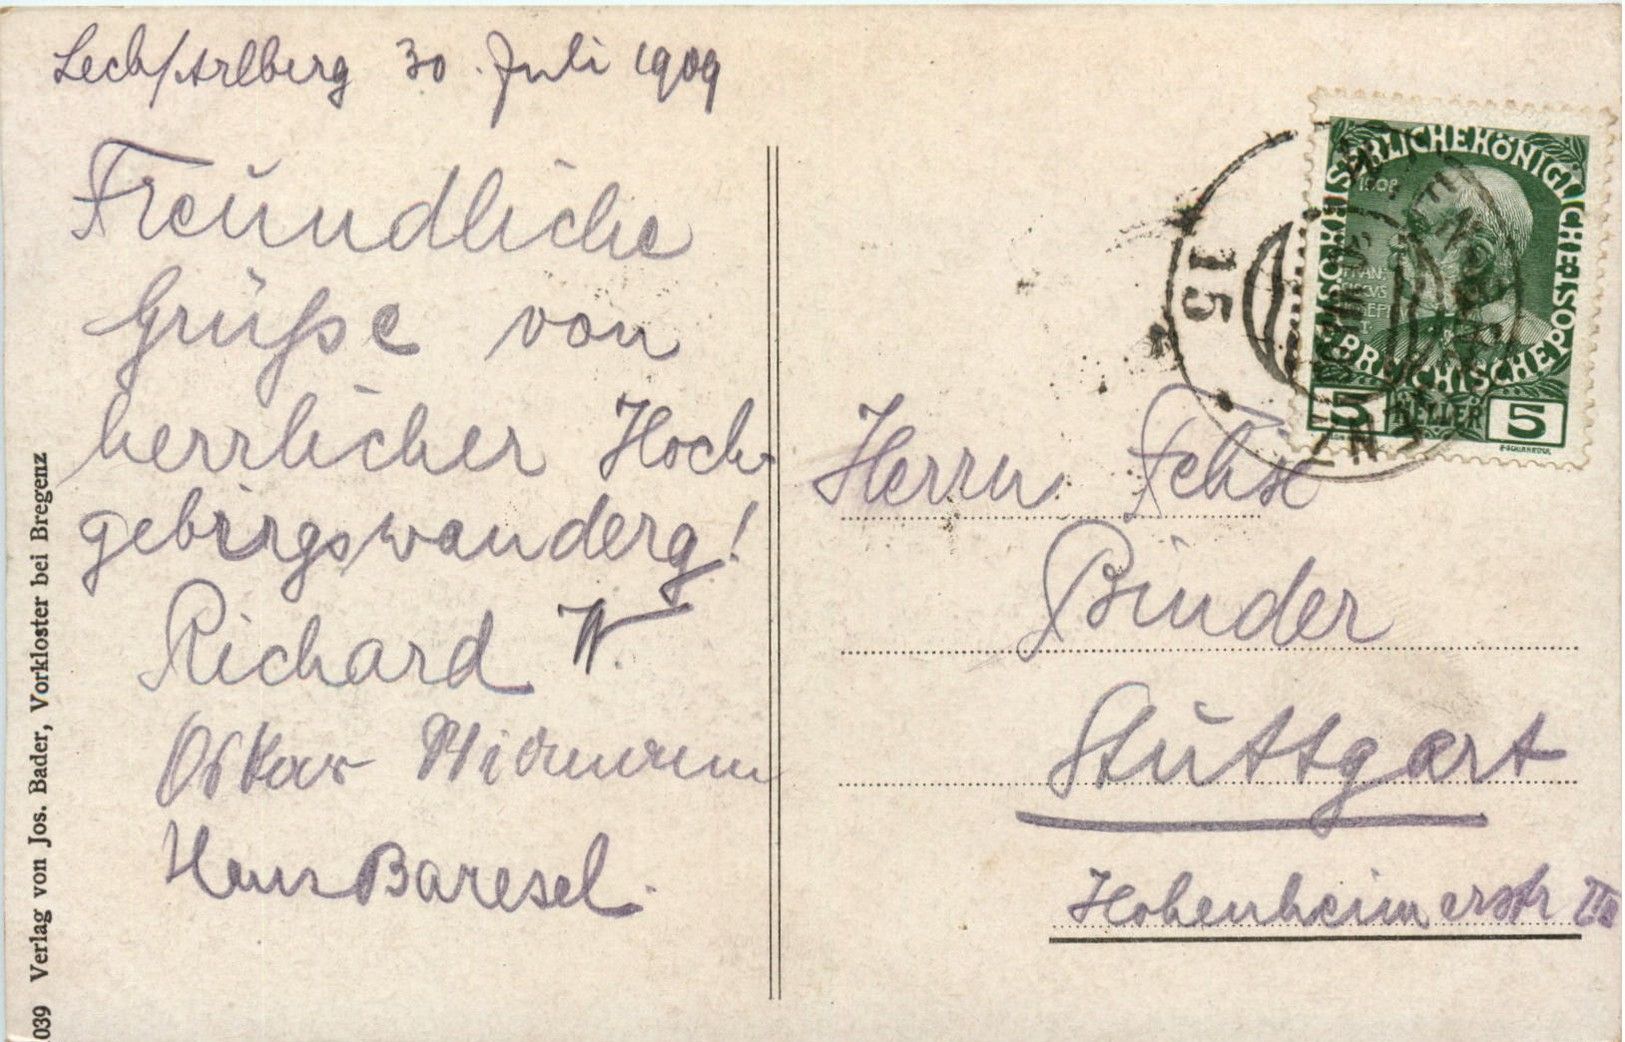 Lech/Arlberg 30. Juli 1909
Freundliche
Grüße von
herrlicher Hoch-
gebirgswanderg!
Richard W.
Oskar Widmann
Hans Baresel.
Herrn
Binder
Stuttgart
Hohenheimerstr
039 Verlag von Jos. Bader, Vorkloster bei Bregenz
KAISERLICHE KÖNIGLICHE ÖSTERREICHISCHE POST
1908
5 HELLER 5
15